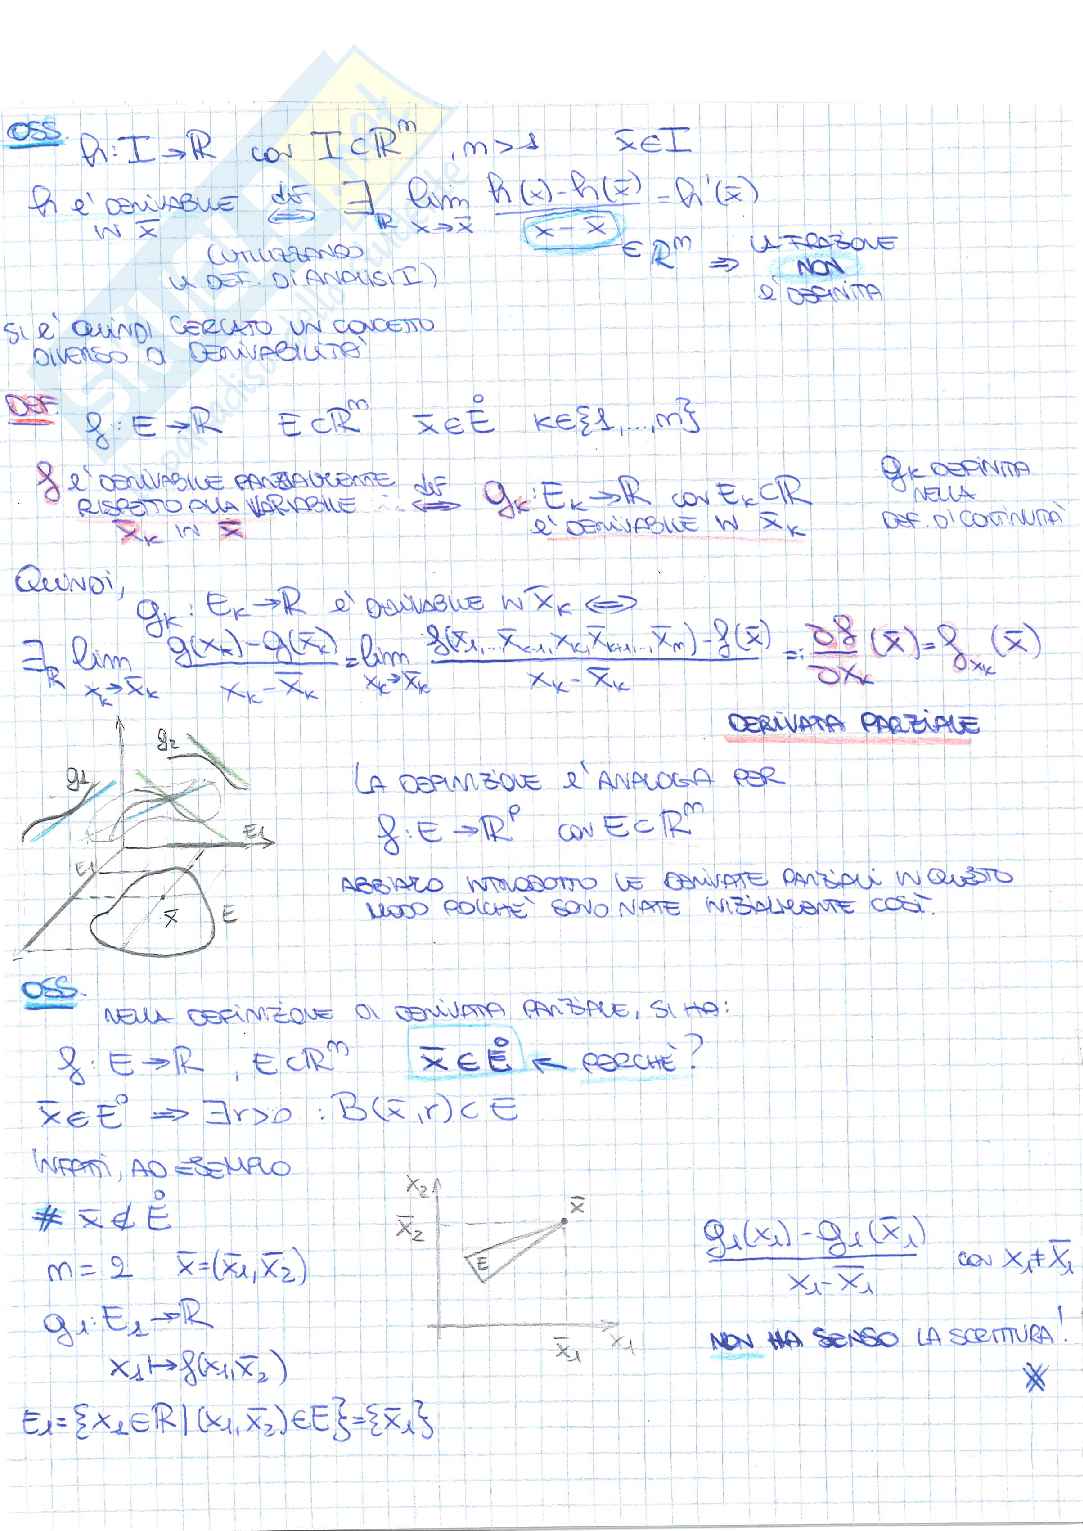 OSS. h: I → ℝ con I ⊂ ℝᵐ, m > 1 x̄ ∈ I
h è DERIVABILE IN x̄ ⟺ (def) ∃_ℝ lim_{x→x̄} (h(x) - h(x̄))/(x - x̄) = h'(x̄)
(UTILIZZANDO LA DEF. DI ANALISI I)
∈ ℝᵐ ⇒ LA FRAZIONE
NON
è DEFINITA
SI è QUINDI CERCATO UN CONCETTO
DIVERSO DI DERIVABILITÀ
DEF. f: E → ℝ E ⊂ ℝᵐ x̄ ∈ E̊ k ∈ {1,...,m}
f è DERIVABILE PARZIALMENTE
RISPETTO ALLA VARIABILE
x̄ₖ IN x̄
⟺ (def) gₖ: Eₖ → ℝ con Eₖ ⊂ ℝ
è DERIVABILE IN x̄ₖ
gₖ DEFINITA
NELLA
DEF. DI COTINUITÀ
QUINDI,
gₖ: Eₖ → ℝ è DERIVABILE IN x̄ₖ ⟺
∃_ℝ lim_{xₖ→x̄ₖ} (g(xₖ) - g(x̄ₖ))/(xₖ - x̄ₖ) = lim_{xₖ→x̄ₖ} (f(x̄₁,...x̄ₖ₋₁,xₖ,x̄ₖ₊₁,...,x̄ₘ) - f(x̄))/(xₖ - x̄ₖ) =: ∂f/∂xₖ (x̄) = f_{xₖ}(x̄)
DERIVATA PARZIALE
g₂
g₁
E₂
E₁
x̄
E
LA DEFINIZIONE è ANALOGA PER
f: E → ℝᵖ con E ⊂ ℝᵐ
ABBIAMO INTRODOTTO LE DERIVATE PARZIALI IN QUESTO
MODO POICHÈ SONO NATE INIZIALMENTE COSÌ.
OSS.
NELLA DEFINIZIONE DI DERIVATA PARZIALE, SI HA:
f: E → ℝ, E ⊂ ℝᵐ x̄ ∈ E̊ ← PERCHÈ?
x̄ ∈ E° ⇒ ∃r>0 : B(x̄,r) ⊂ E
INFATTI, AD ESEMPIO
# x̄ ∉ E̊
m = 2 x̄ = (x̄₁, x̄₂)
g₁: E₁ → ℝ
x₁ ↦ f(x₁, x̄₂)
E₁ = {x₁ ∈ ℝ | (x₁, x̄₂) ∈ E} = {x̄₁}
x₂
x̄₂
x̄
E
x̄₁
x₁
(g₁(x₁) - g₁(x̄₁))/(x₁ - x̄₁) con x₁ ≠ x̄₁
NON HA SENSO LA SCRITTURA!